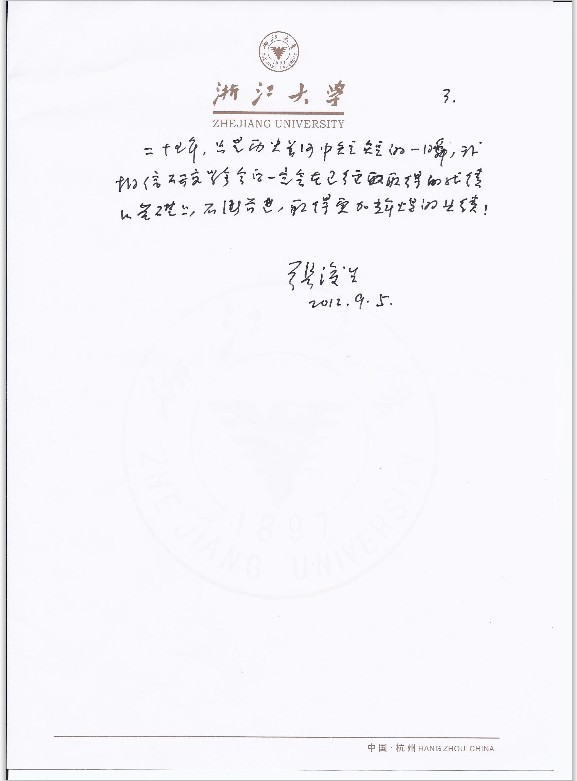 浙江大学
1897
浙江大学
ZHEJIANG UNIVERSITY
3.
二十七年,只是历史长河中短短的一瞬,我
相信研究学会会在已经取得的成绩
的基础上,不断前进,取得更加辉煌的业绩!
张浚生
2012.9.5.
1897
ZHEJIANG UNIVERSITY
中国·杭州 HANGZHOU CHINA